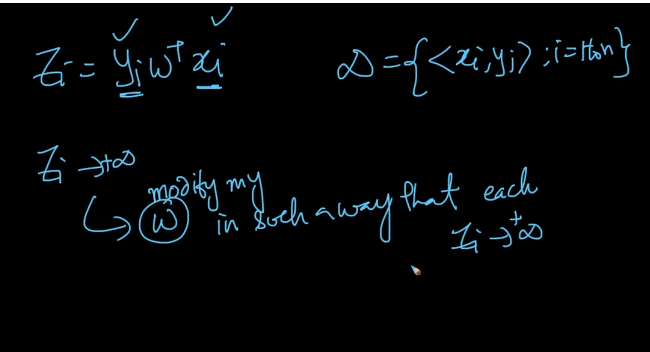 Zi = yi wᵀ xi
D = {<xi, yi>; i=1 to n}
Zi → +∞
modify my
↳ w in such a way that each
Zi → +∞